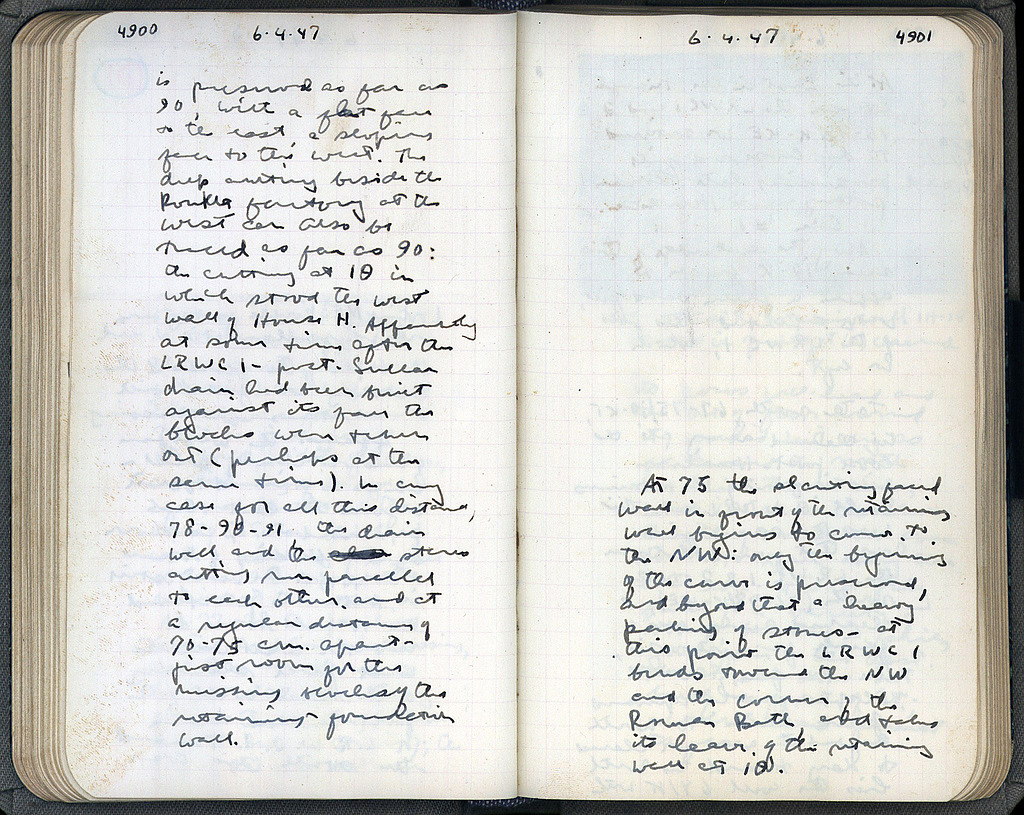 4900
6.4.47
is preserved as far as
90, with a flat face
to the east, a sloping
face to the west. The
deep cutting beside the
factory at the
west can also be
traced as far as 90:
the cutting at 10 in
which stood the west
wall of House H. Apparently
at some time after the
LRWC 1 - post-Sullan
drain had been built
against its face the
blocks were taken
out (perhaps at the
same time). In any
case for all this distance,
78-90-91, the drain
wall and the stereo
cutting run parallel
to each other, and at
a regular distance of
70-75 cm. apart -
just room for the
missing section of the
retaining foundation
wall.
6.4.47
4901
At 75 the slanting faced
wall in front of the retaining
wall begins to curve to
the NW: only the beginning
of the curve is preserved,
and beyond that a heavy
packing of stones - at
this point the LRWC 1
bends toward the NW
and the corner of the
Roman Bath, and takes
its leave of the retaining
wall at 10.